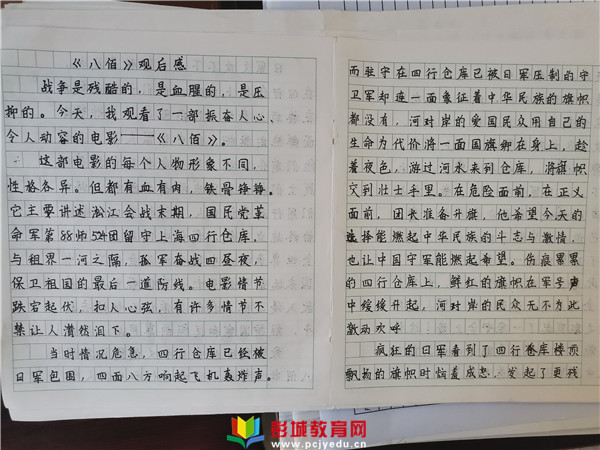 《八佰》观后感
战争是残酷的，是血腥的，是压
抑的。今天，我观看了一部振奋人心、
令人动容的电影——《八佰》。
这部电影的每个人物形象不同，
性格各异。但都有血有肉，铁骨铮铮。
它主要讲述淞江会战末期，国民党革
命军第88师524团留守上海四行仓库，
与租界一河之隔，孤军奋战四昼夜，
保卫祖国的最后一道防线。电影情节
跌宕起伏，扣人心弦，有许多情节不
禁让人潸然泪下。
当时情况危急，四行仓库已经被
日军包围，四面八方响起飞机轰炸声。
而驻守在四行仓库已被日军压制的守
卫军却连一面象征着中华民族的旗帜
都没有，河对岸的爱国民众用自己的
生命为代价将一面国旗绑在身上，趁
着夜色，游过河水来到仓库，将旗帜
交到壮士手里。在危险面前，在正义
面前，团长准备升旗，他希望今天的
选择能燃起中华民族的斗志与激情，
也让中国守军能燃起希望。伤痕累累
的四行仓库上，鲜红的旗帜在军号声
中缓缓升起，河对岸的民众无不为此
激动欢呼
疯狂的日军看到了四行仓库楼顶
飘扬的旗帜时恼羞成怒，发起了更残
彭城教育网
www.pcjyedu.cn